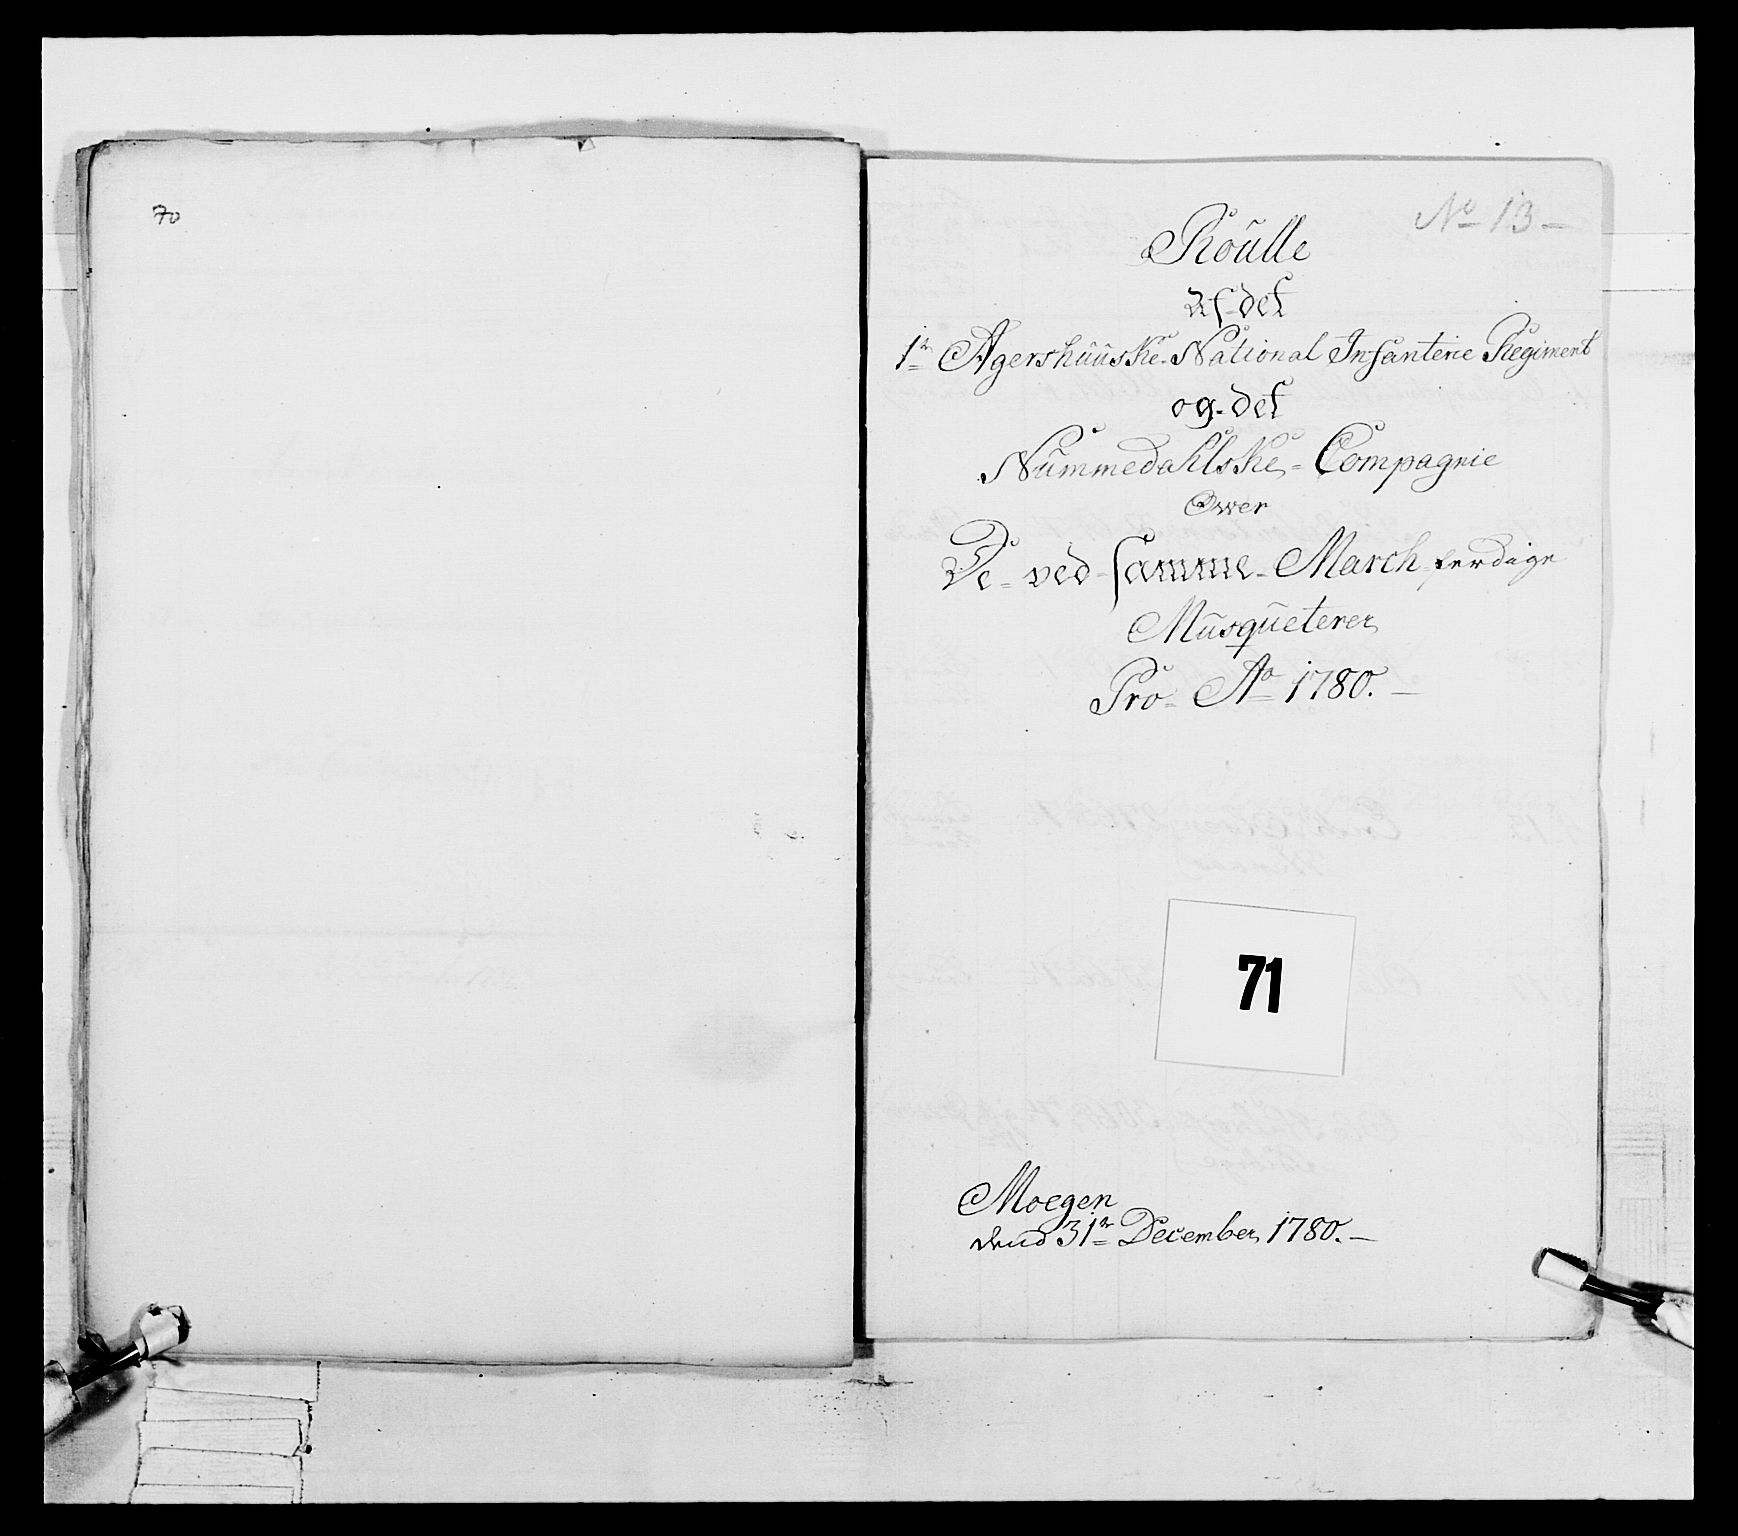 70
No 13 –
Roülle
Af det
1te Agershüüske National Infanterie Regiment
og det
Nümmedahlske Compagnie
Ower
De ved samme March ferdige
Müsqüeterer
Pro Ao 1780. –
71
Moegen
dend 31te December 1780. –